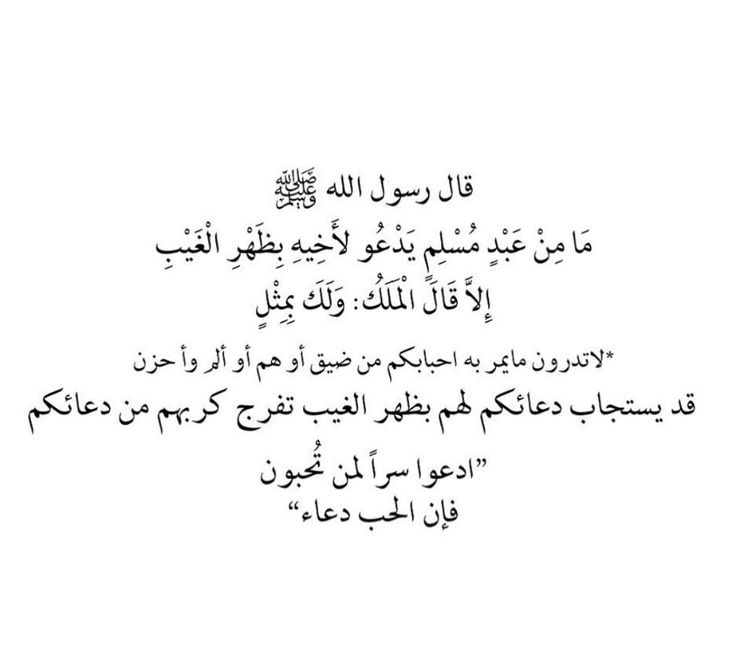 قال رسول الله ﷺ
مَا مِنْ عَبْدٍ مُسْلِمٍ يَدْعُو لأَخِيهِ بِظَهْرِ الْغَيْبِ
إِلاَّ قَالَ الْمَلَكُ: وَلَكَ بِمِثْلٍ
*لاتدرون مايمر به احبابكم من ضيق أو هم أو ألم وأ حزن
قد يستجاب دعائكم لهم بظهر الغيب تفرج كربهم من دعائكم
”ادعوا سراً لمن تُحبون
فإن الحب دعاء“